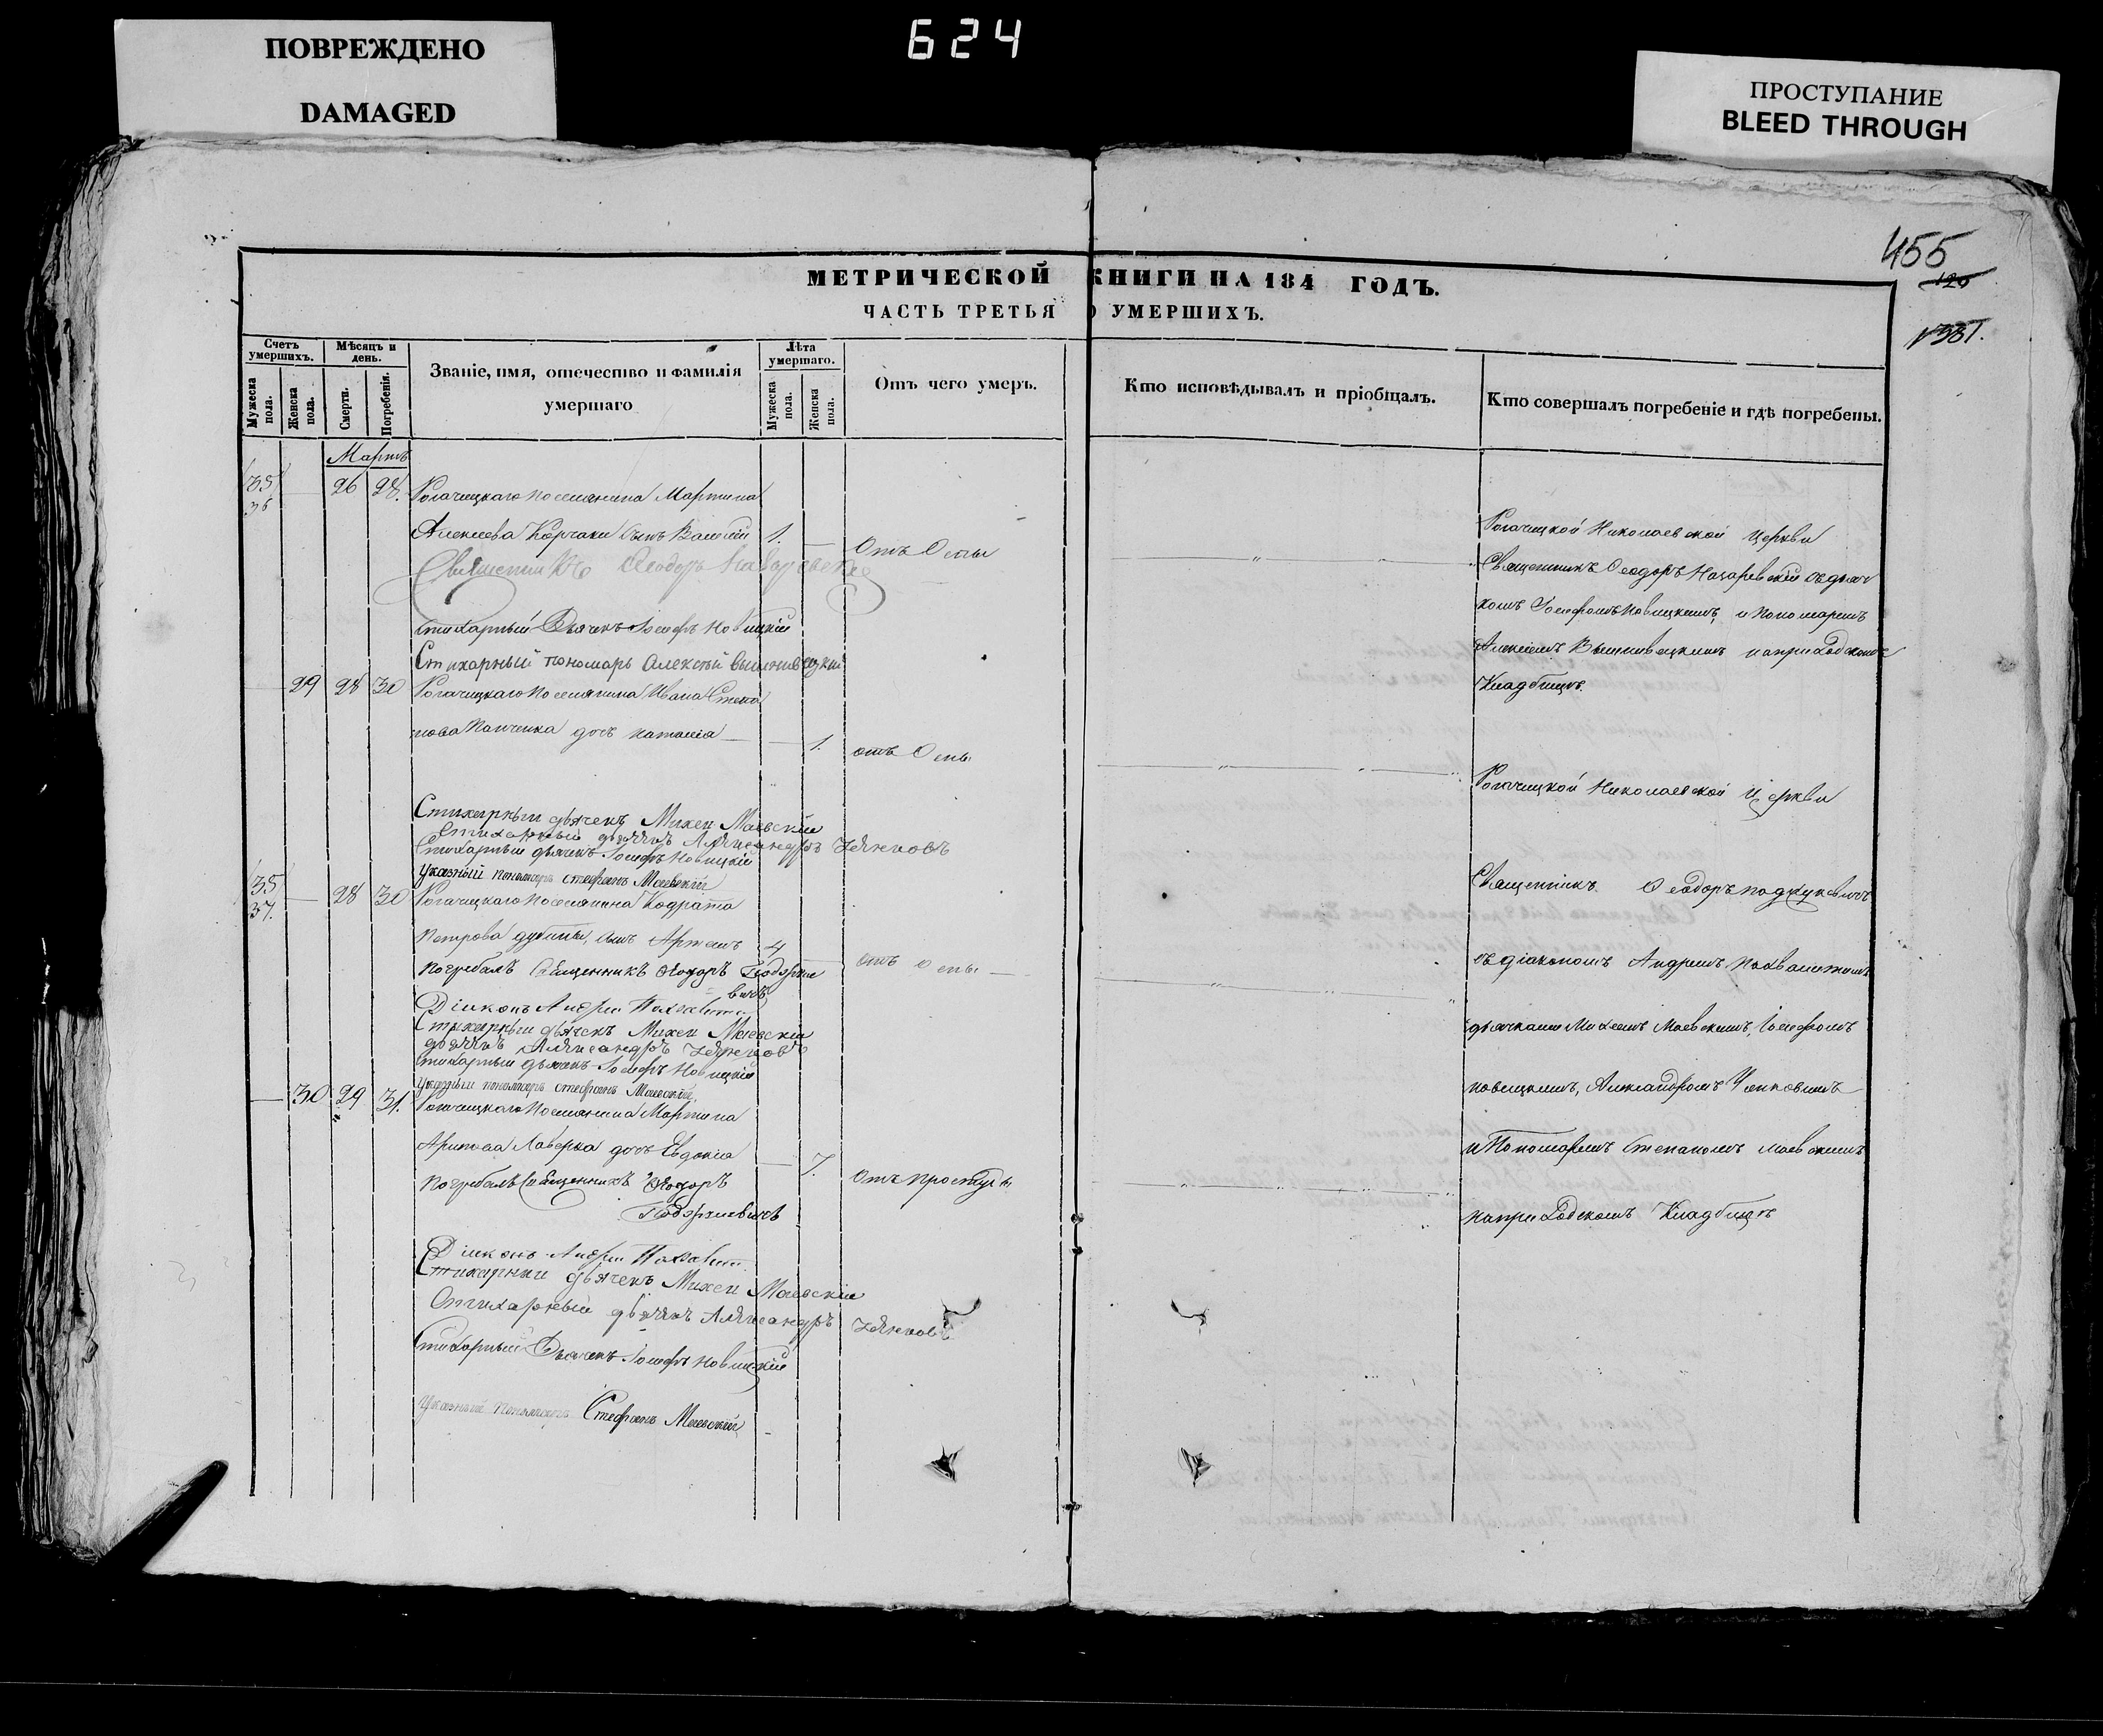 ПОВРЕЖДЕНО
DAMAGED
624
ПРОСТУПАНИЕ
BLEED THROUGH
455
126
МЕТРИЧЕСКОЙ КНИГИ НА 184 ГОДЪ.
ЧАСТЬ ТРЕТЬЯ О УМЕРШИХЪ.
Счетъ умершихъ.
Мужеска пола.
Женска пола.
Мѣсяцъ и день.
Смерти.
Погребенія.
Званіе, имя, отечество и фамилія
умершаго
Лѣта умершаго.
Мужеска пола.
Женска пола.
Отъ чего умеръ.
Кто исповѣдывалъ и пріобщалъ.
Кто совершалъ погребеніе и гдѣ погребены.
Мартъ
35 26 28. Рогачицкаго поселянина Мартина
36
Алексеева Корчаки сынъ 1. Отъ Оспы
Священникъ Ѳеодоръ Назаревскій
Стихарный Дьячекъ Іосифъ Новицкій
Стихарный пономарь Алексѣй Вышневецкій
29 28 30 Рогачицкаго поселянина Ивана Степа
нова Панченка дочь Наталія 1. отъ Оспы
Стихарный дьячекъ Михей Маевскій
Стихарный дьячекъ Александръ
Стихарный дьячекъ Іосифъ Новицкій
Указный пономарь Стефанъ Маевскій
35 28 30 Рогачицкаго поселянина Кодрата
37.
Петрова сынъ Артемъ 4 отъ оспы
погребалъ Священникъ Ѳеодоръ
вичъ
Діаконъ Андрей
Стихарный дьячекъ Михей Маевскій
дьячекъ Александръ
Стихарный дьячекъ Іосифъ Новицкій
Указный пономарь Стефанъ Маевскій
30 29 31. Рогачицкаго поселянина Мартина
Лаверка дочь Евдокія 7. Отъ простуды
погребалъ Священникъ Ѳеодоръ
Діаконъ Андрей
Стихарный дьячекъ Михей Маевскій
Стихарный дьячекъ Александръ
Стихарный Дьячекъ Іосифъ Новицкій
Указный пономарь Стефанъ Маевскій
Рогачицкой Николаевской Церкви
Священникъ Ѳеодоръ Назаревскій съ дьяч
комъ Іосифомъ Новицкимъ, и пономаремъ
Алексѣемъ Вышневецкимъ на приходскомъ
Кладбищѣ.
Рогачицкой Николаевской Церкви
Священникъ Ѳеодоръ
съ діакономъ Андреемъ
дьячками Михеемъ Маевскимъ, Іосифомъ
Новицкимъ, Александромъ
и Пономаремъ Степаномъ Маевскимъ
на приходскомъ Кладбищѣ